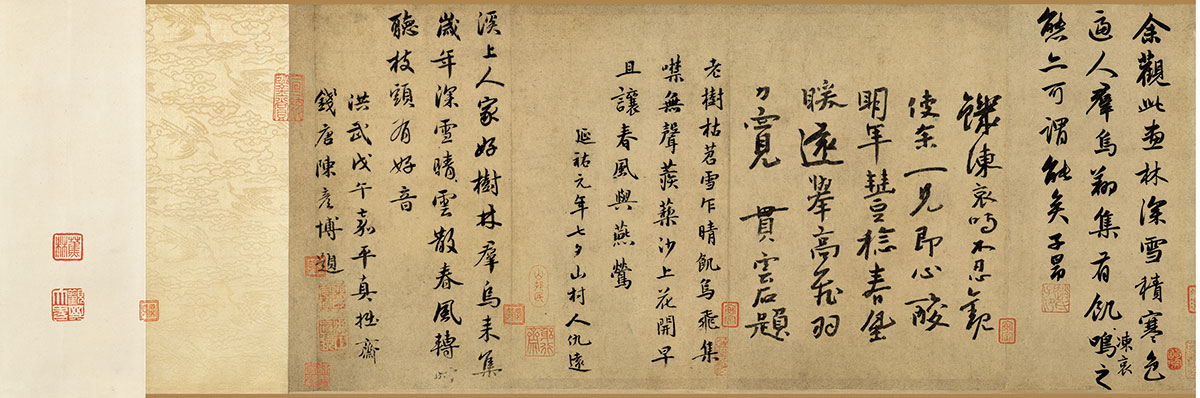 余觀此畫林深雪積寒色
逼人羣烏翔集有飢鳴之
凍哀
態亦可謂能矣子昂
饑凍哀鳴不忍觀
使余一見即心酸
明年豐稔春
暖遠舉高飛羽
力寬 貫雲石題
老樹枯苕雪乍晴飢烏飛集
噤無聲蒺藜沙上花開早
且讓春風與燕鶯
延祐元年七夕山村人仇遠
溪上人家好樹林羣烏來集
歲年深雪晴雲散春風轉
聽枝頭有好音
洪武戊午嘉平真拙齋
錢唐陳彥博題